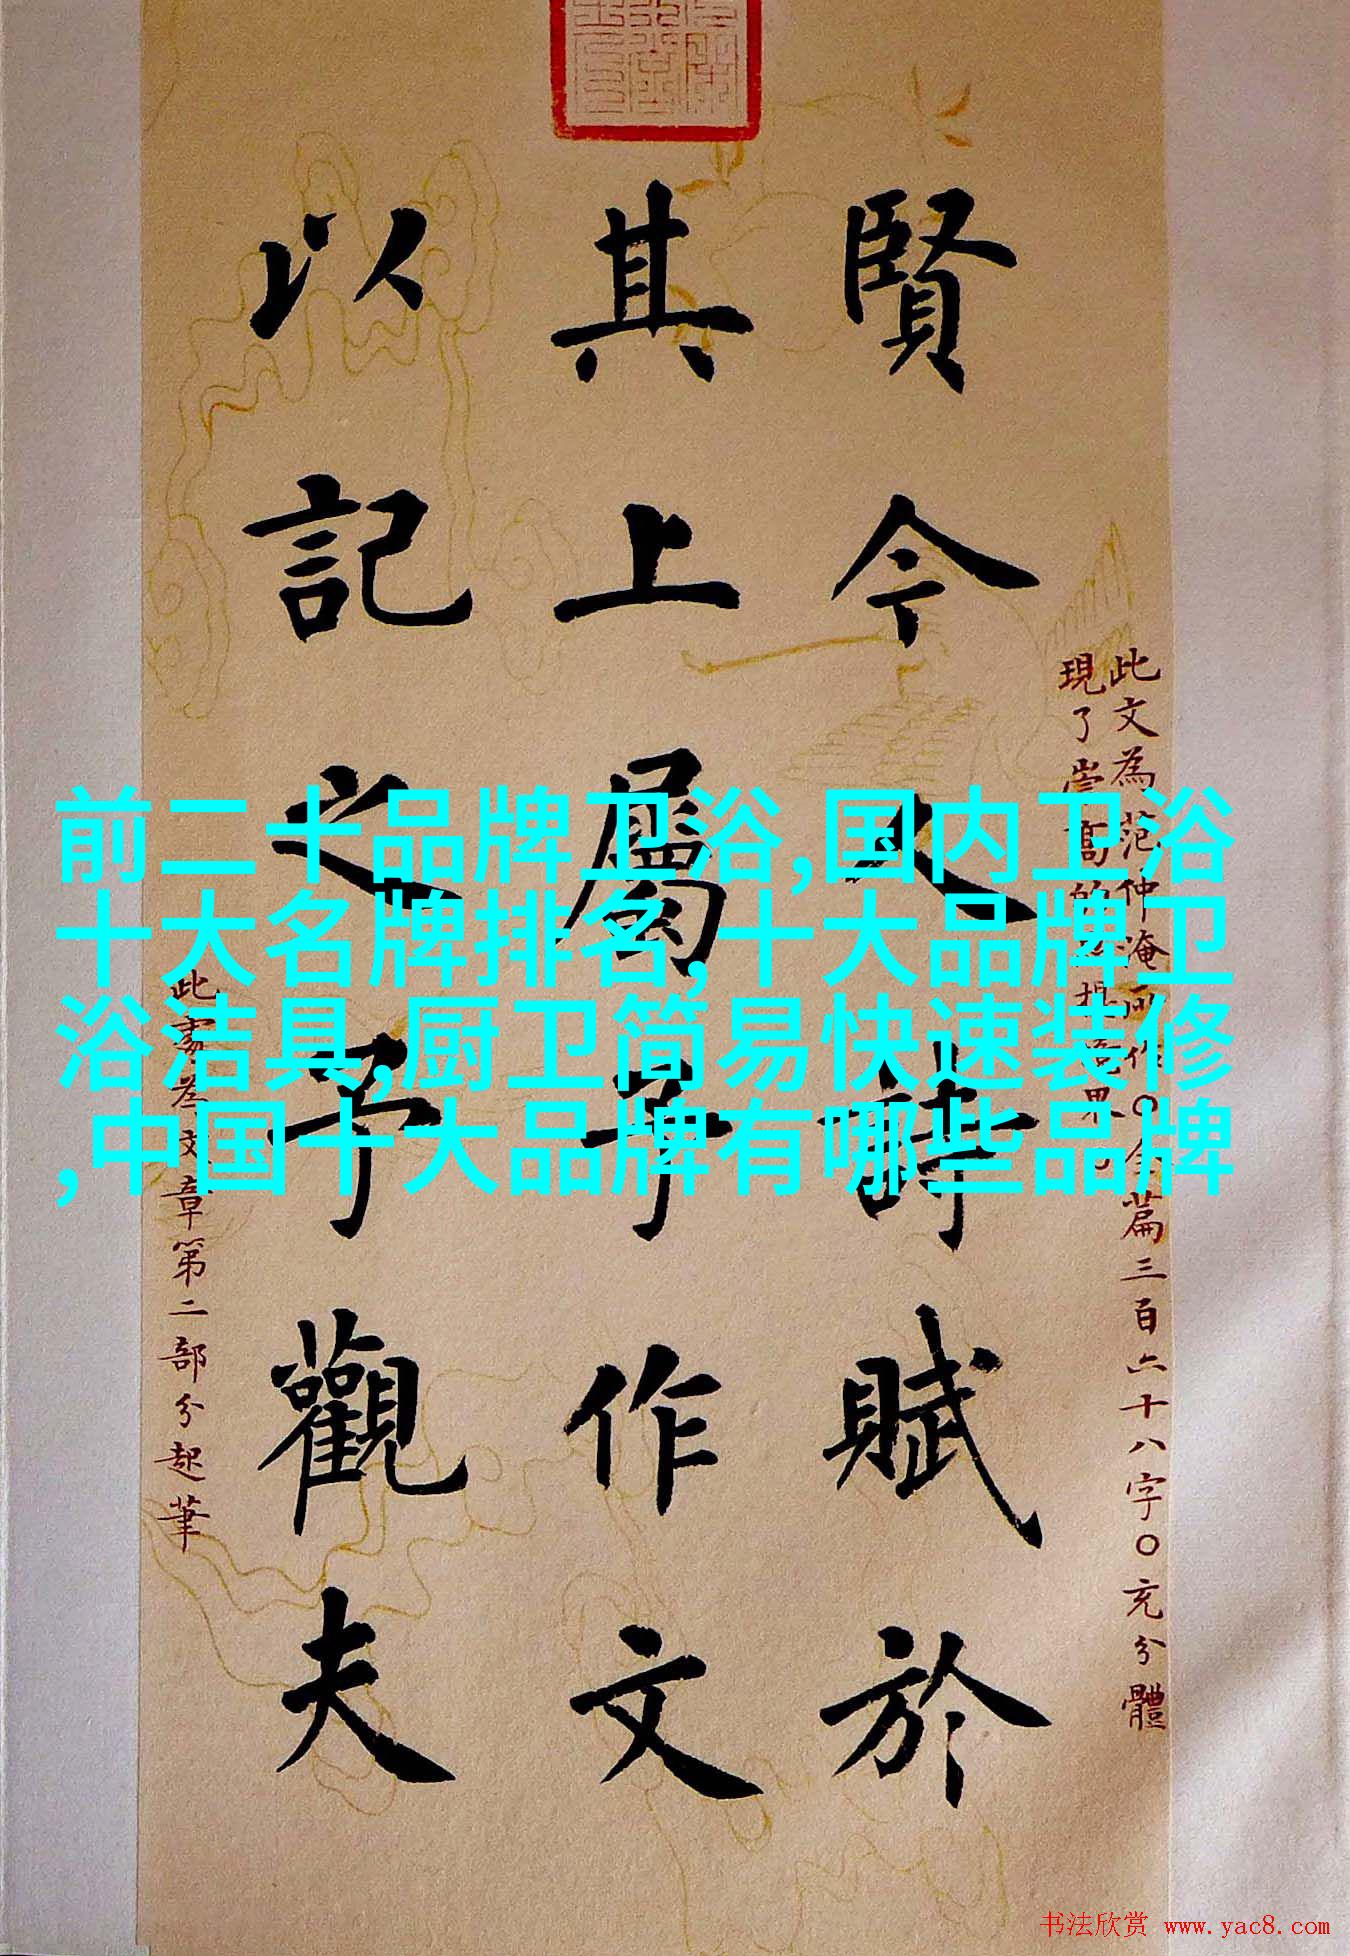 此文為范仲淹所作〇全篇三百六十八字〇充分體
現了崇高的
賢今人詩賦於
其上屬予作文
以記之予觀夫
此書為文章第二部分起筆
前二十品牌卫浴,国内卫浴
十大名牌排名,十大品牌卫
浴洁具,厨卫简易快速装修
,中国十大品牌有哪些品牌
书法欣赏 www.yac8.com